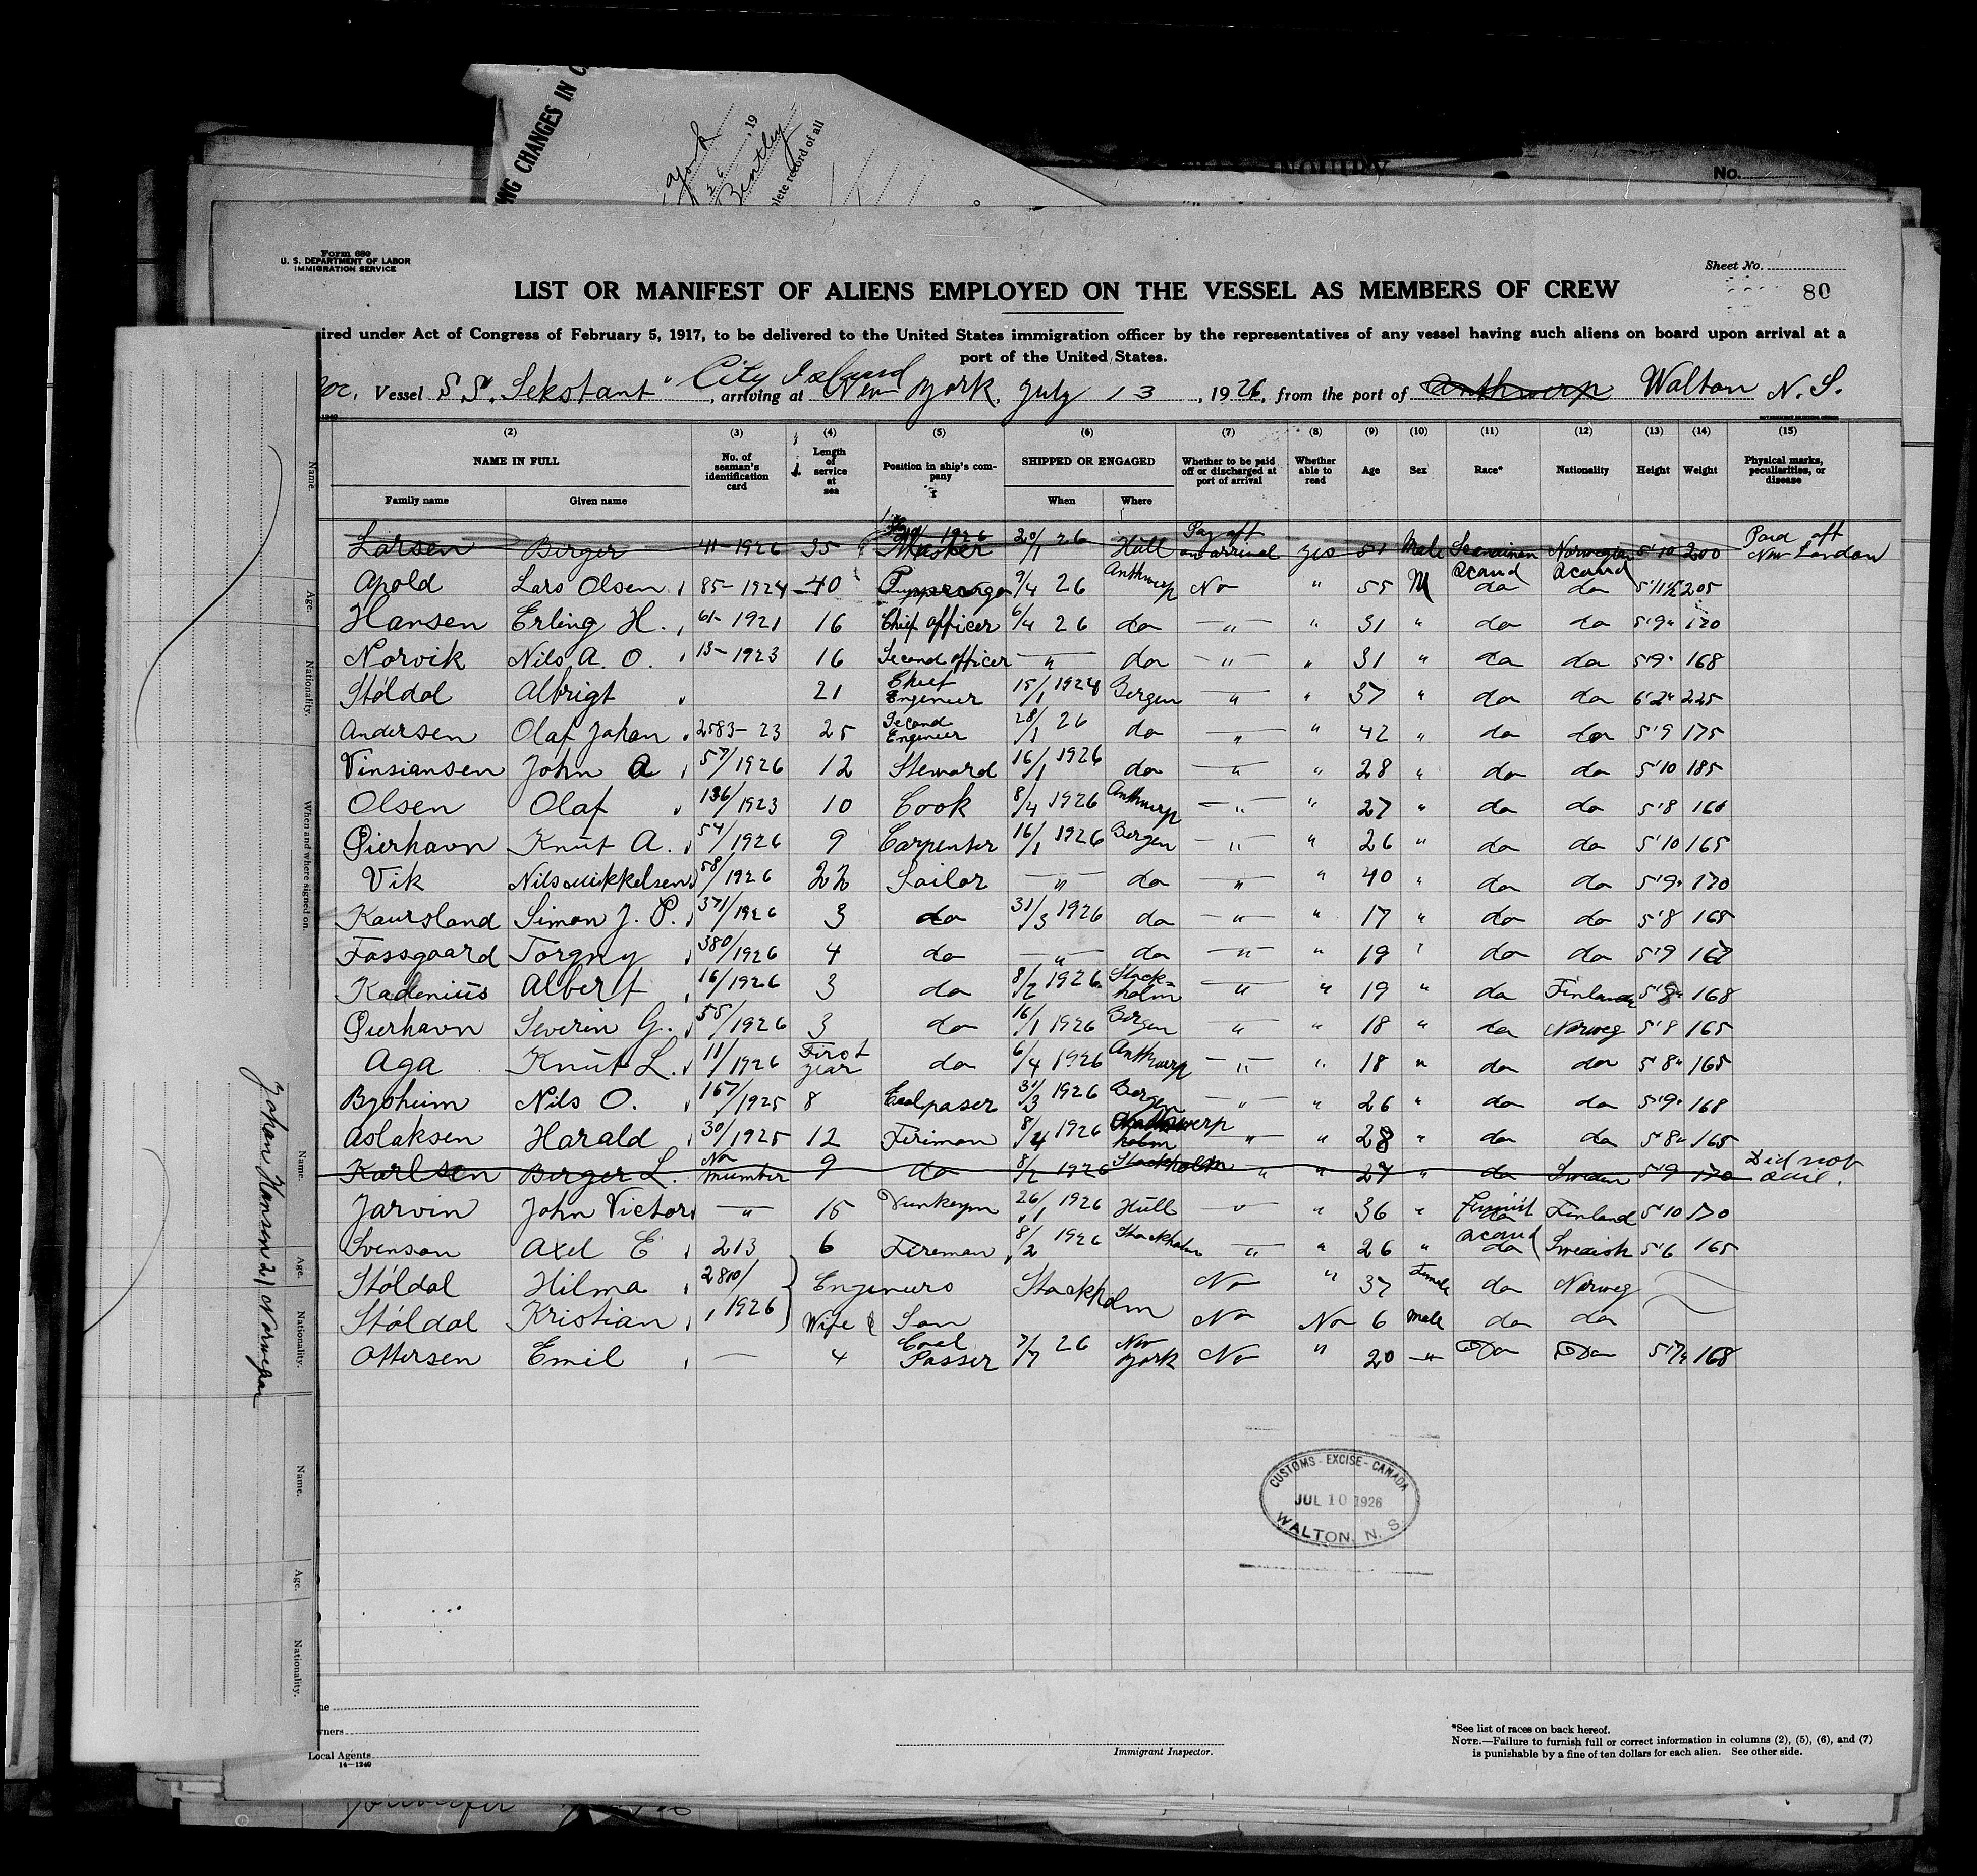 NG CHANGES IN C
York
26, 19
Bentley
plete record of all
INQUIRY
No.
Form 680
U. S. DEPARTMENT OF LABOR
IMMIGRATION SERVICE
Sheet No.
80
LIST OR MANIFEST OF ALIENS EMPLOYED ON THE VESSEL AS MEMBERS OF CREW
ired under Act of Congress of February 5, 1917, to be delivered to the United States immigration officer by the representatives of any vessel having such aliens on board upon arrival at a
port of the United States.
City Island
Vessel S.S. Sekstant, arriving at New York. July 13, 1926, from the port of Anthwerp Walton N.S.
(2) (3) (4) (5) (6) (7) (8) (9) (10) (11) (12) (13) (14) (15)
NAME IN FULL No. of seaman's identification card Length of service at sea Position in ship's company SHIPPED OR ENGAGED Whether to be paid off or discharged at port of arrival Whether able to read Age Sex Race* Nationality Height Weight Physical marks, peculiarities, or disease
Family name Given name When Where
Larsen Birger 41-1926 35 Master 20/1 26 Hull Pay off on arrival yes 51 Male Scandinavian Norwegian 5'10 200 Paid off New London
Apold Lars Olsen 85-1924 40 9/4 26 Anthwerp No " 55 M Scand do Scand do 5'11½ 205
Hansen Erling H. 61-1921 16 Chief officer 6/4 26 do " " 31 " do do 5'9" 170
Norvik Nils A. O. 13-1923 16 Second officer " do " " 31 " do do 5'9" 168
Stöldal Albrigt 21 Chief Engineer 15/1 1924 Bergen " " 37 " do do 6'2" 225
Andersen Olaf Johan 2583-23 25 Second Engineer 28/1 26 do " " 42 " do do 5'9 175
Vinsiansen John A 57/1926 12 Steward 16/1 1926 do " " 28 " do do 5'10 185
Olsen Olaf 136/1923 10 Cook 8/4 1926 Anthwerp " " 27 " do do 5'8 160
Gierhavn Knut A. 54/1926 9 Carpenter 16/1 1926 Bergen " " 26 " do do 5'10 165
Vik Nils Mikkelsen 58/1926 22 Sailor " do " " 40 " do do 5'9" 170
Kaursland Simon J. P. 371/1926 3 do 31/3 1926 do " " 17 " do do 5'8 165
Fossgaard Torgny 380/1926 4 do " do " " 19 " do do 5'9
Kadenius Albert 16/1926 3 do 8/2 1926 Stockholm " " 19 " do Finland 5'8" 168
Gierhavn Severin G. 55/1926 3 do 16/1 1926 Bergen " " 18 " do Norweg 5'8 165
Aga Knut L. 11/1926 First year do 6/4 1926 Anthwerp " " 18 " do do 5'8" 165
Byoheim Nils O. 167/1925 8 Coalpaser 31/3 1926 Bergen " " 26 " do do 5'9" 168
Aslaksen Harald 30/1925 12 Fireman 8/4 1926 Anthwerp " " 28 " do do 5'8" 165
Karlsen Birger L. No number 9 do 8/2 1926 Stockholm " " 27 " do Sweden 5'9 170 Did not sail.
Jarvin John Victor " 15 Dunkeyn 26/1 1926 Hull " " 36 " Finnish do Finland 5'10 170
Svenson Axel E 213 6 Fireman 8/2 1926 Stockholm " " 26 " Scand do Swedish 5'6 165
Stöldal Hilma 2810/ Engineers Stockholm No " 37 Female do Norweg
Stöldal Kristian 1926 Wife & Son No No 6 Male do do
Ottersen Emil — 4 Coal Passer 7/7 26 New York No " 20 " Do Do 5'7½ 168
CUSTOMS-EXCISE-CANADA
JUL 10 1926
WALTON, N. S.
Name.
Age.
Nationality.
When and where signed on.
Name.
Age.
Nationality.
Name.
Age.
Nationality.
Johan Hansen 21 Norwegian
ne
wners
Local Agents
14—1240
Immigrant Inspector.
*See list of races on back hereof.
NOTE.—Failure to furnish full or correct information in columns (2), (5), (6), and (7)
is punishable by a fine of ten dollars for each alien. See other side.